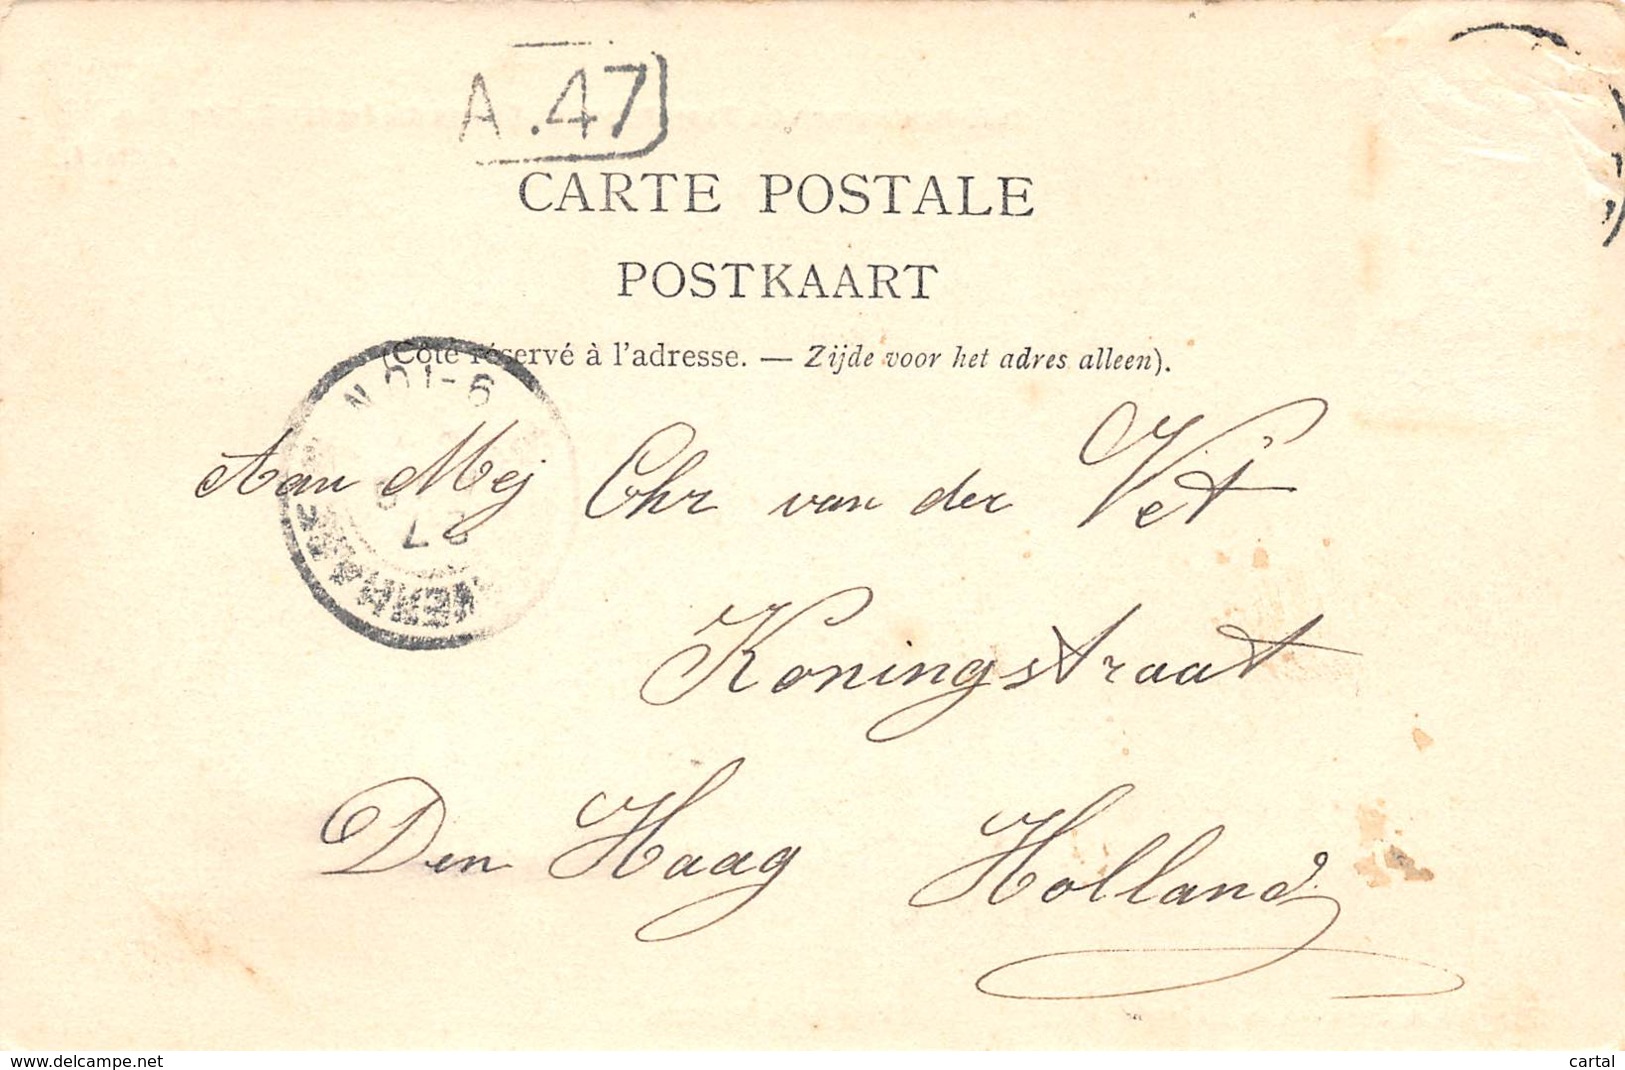 A.47
CARTE POSTALE
POSTKAART
(Côté réservé à l'adresse. — Zijde voor het adres alleen).
9-10 N
27
Aan Mej Chr van der Vet
Koningstraat
Den Haag Holland
www.delcampe.net
cartal